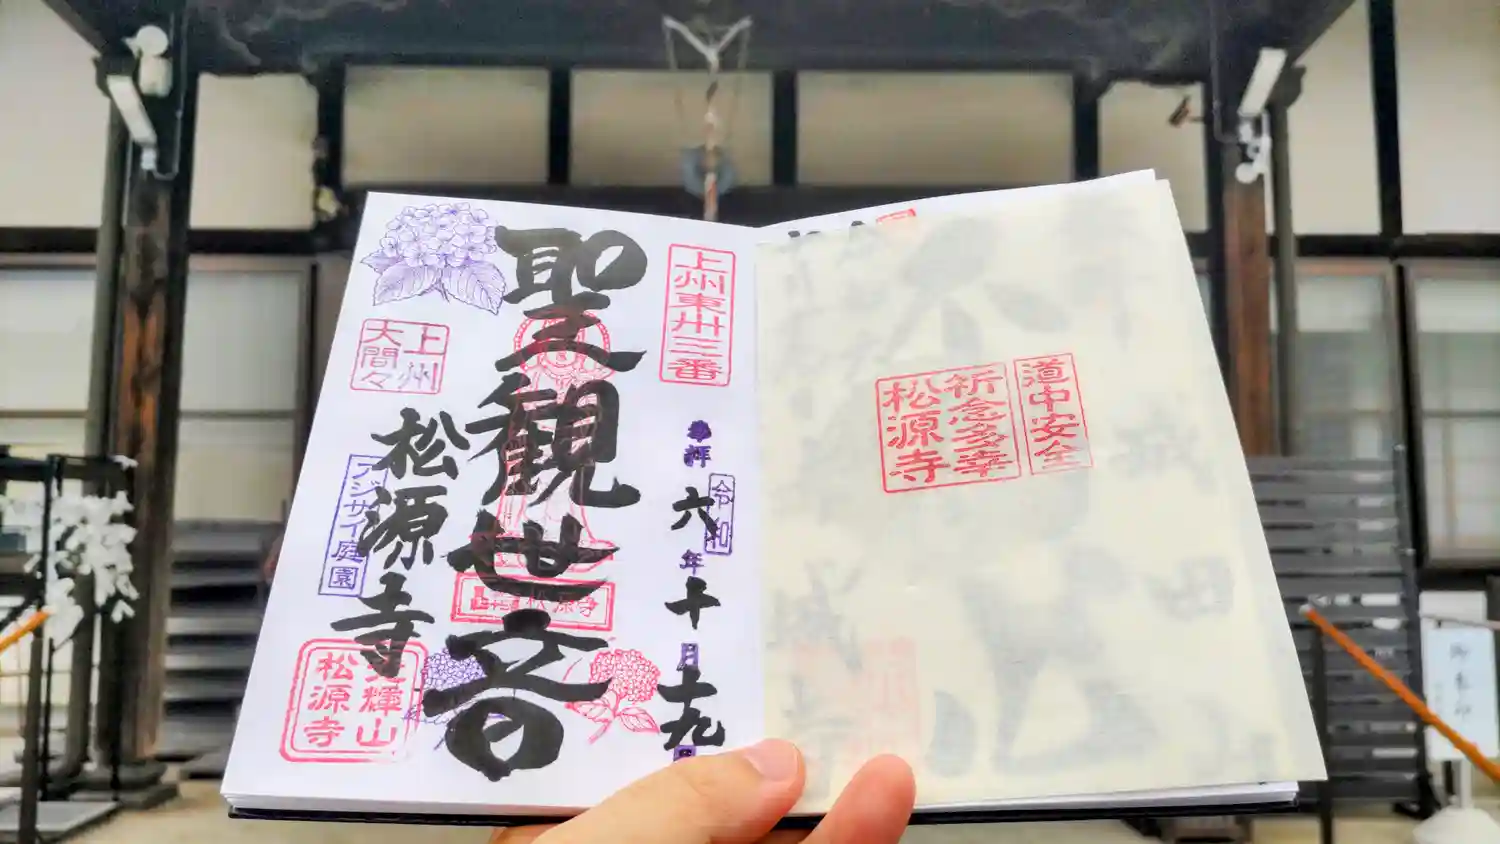 上州東卅三番
奉拝 令和六年十月十九日
聖観世音
松源寺
上州
大間々
アジサイ庭園
松源寺
輝山
松源寺
道中安全
祈念多幸
松源寺
御朱印